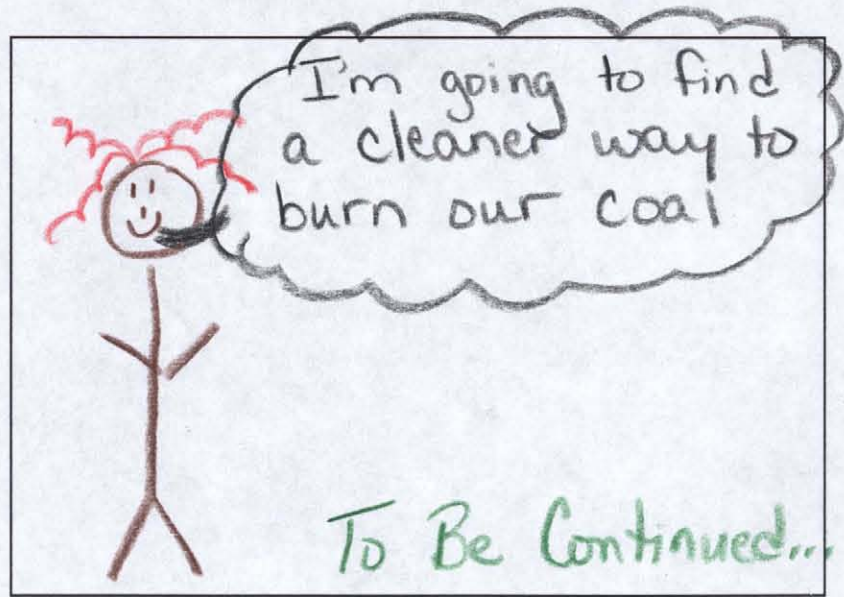 I'm going to find
a cleaner way to
burn our coal
To Be Continued...